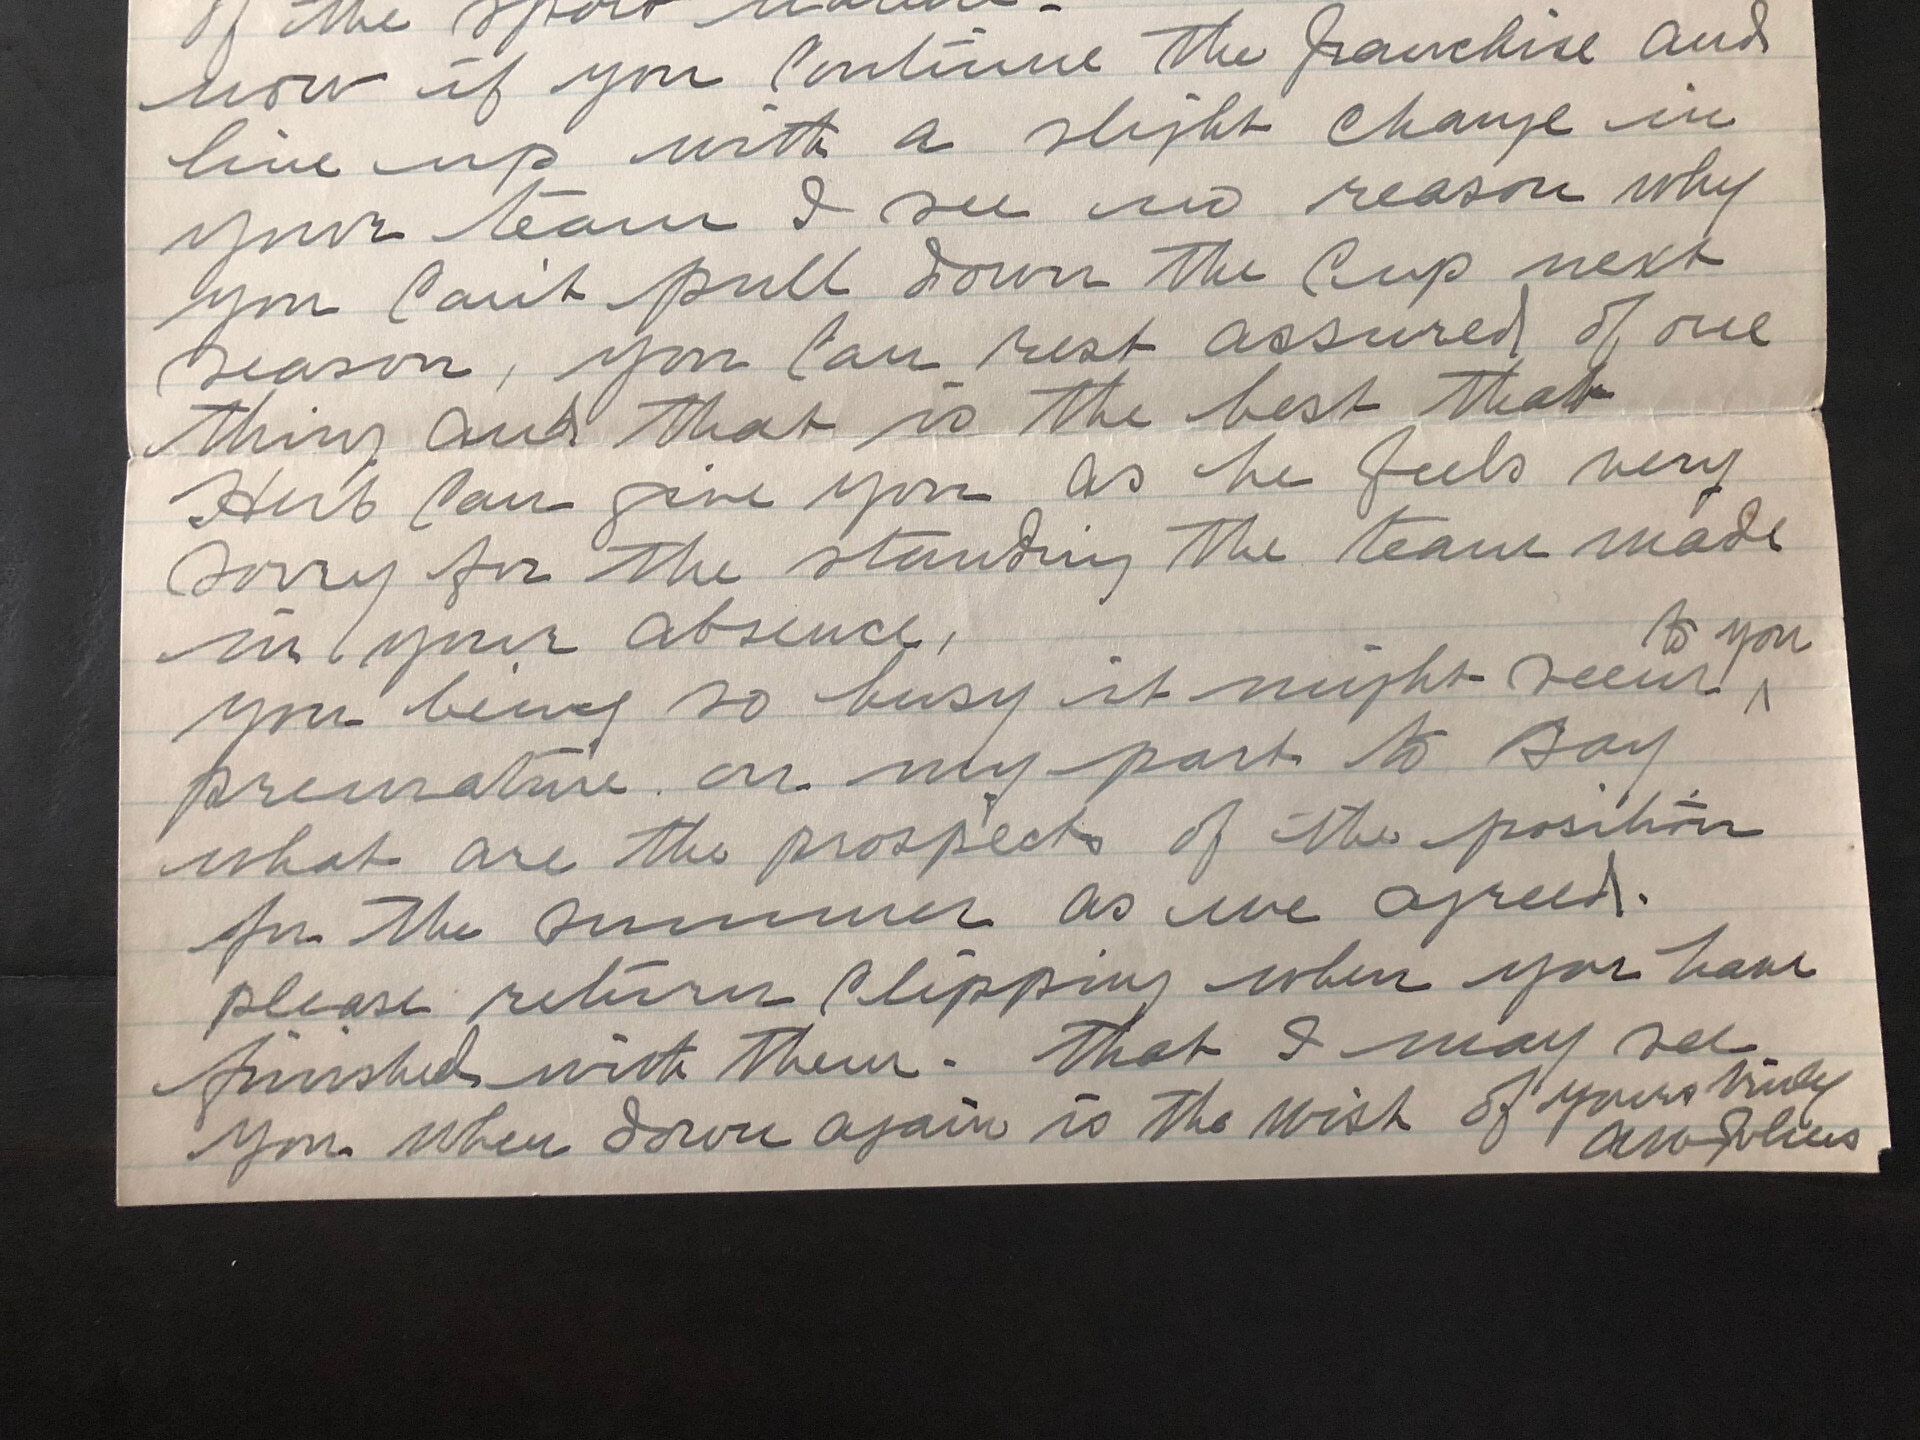 of the sport
now if you continue the franchise and
line up with a slight change in
your team I see no reason why
you can't pull down the Cup next
season, you can rest assured of one
thing and that is the best that
Herb can give you as he feels very
sorry for the standing the team made
in your absence,
you being so busy it might seem to you
premature on my part to say
what are the prospects of the position
for the summer as we agreed.
please return clipping when you have
finished with them. that I may see
you when down again is the wish of yours truly